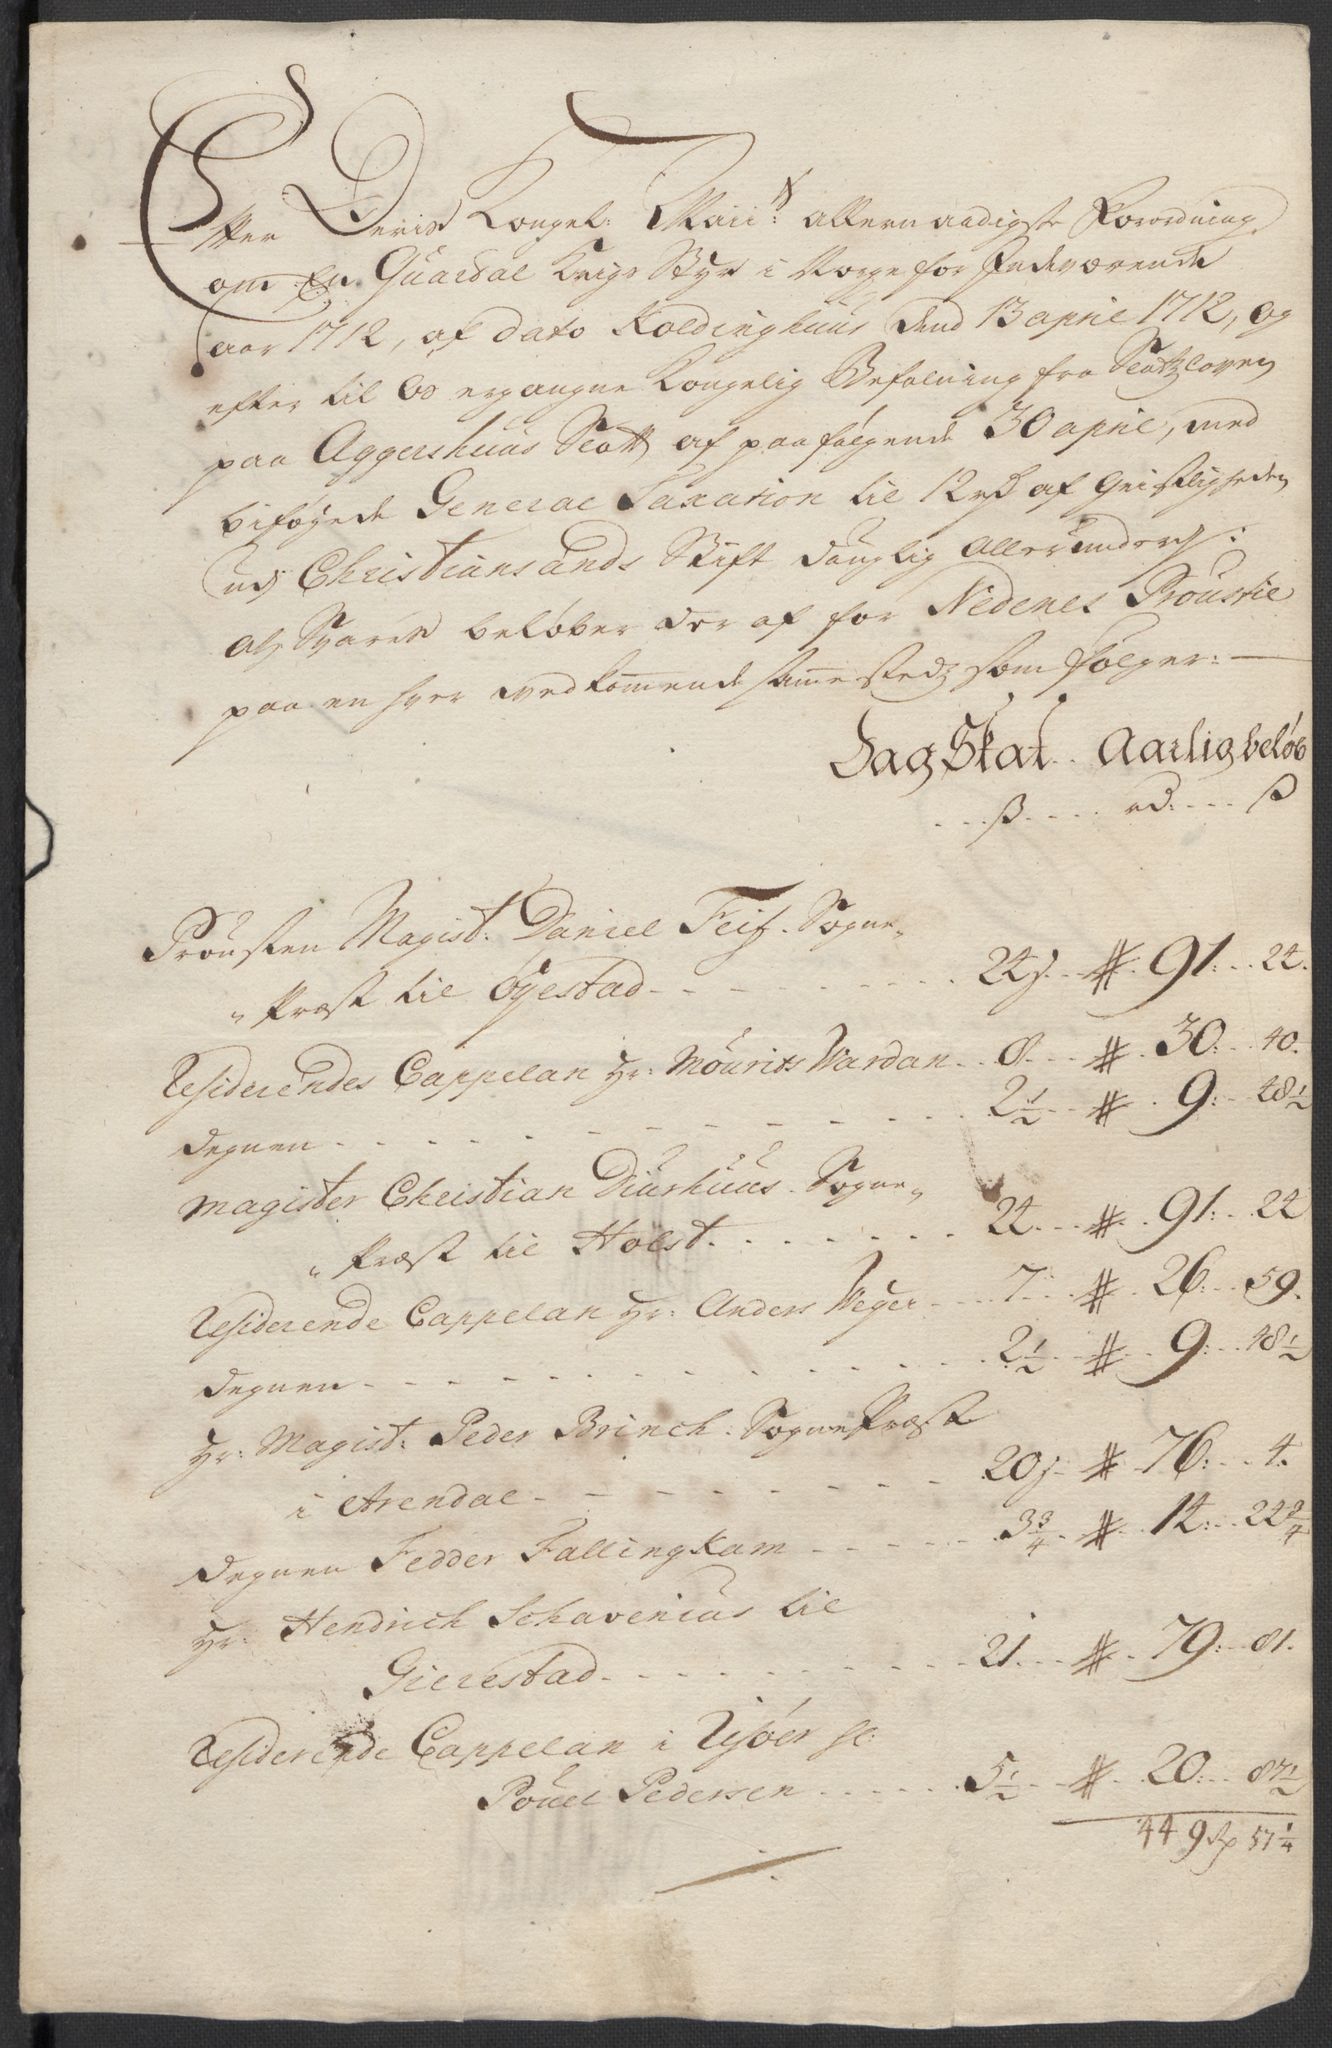 Efter Deris Kongel: Maii:ts allernaadigste Forordning
om En Quardal Krigs Styr i Norge for Indeværende
aar 1712, af dato Koldinghuus dend 13 april 1712, og
efter til Os ergangne Kongelig Befalning fra Slotzloven
paa Aggershuus Slott af paafølgende 30 april, med
biføyede General Taxation til 12 rd af Geistligheden
udj Christiansands Stift dauglig Allerunder:
at Svaris beløber der af for Nedenes Proustie
paa en hver vedkommende sammestedz som følger:
Dag Skat. Aarlig beløb
ß rd: ß
Prousten Magist: Daniel Feif. Sogne„
„Præst til Øyestad 24 j # 91: 24.
Residerendes Cappelan Hr: Mourits Wardan 8 # 30: 40.
Degnen 2½ # 9: 48½
Magister Christian Diurhuus Sogne„
„Præst til Holst 24 # 91: 24
Residerende Cappelan Hr: Anders Weyer 7 # 26: 59.
Degnen 2½ # 9: 48½
Hr: Magist: Peder Brinch SognePræst
i Arendal 20 j # 76: 4.
Degnen Fedder Fallingkam 3¾ # 14: 24 2/4
Hr: Hendrich Schavenius til
Gierestad 21 # 79: 81.
Residerende Cappelan i Riisøer Hr:
Pouel Pedersen 5½ # 20: 87½
449 Rp 57¼